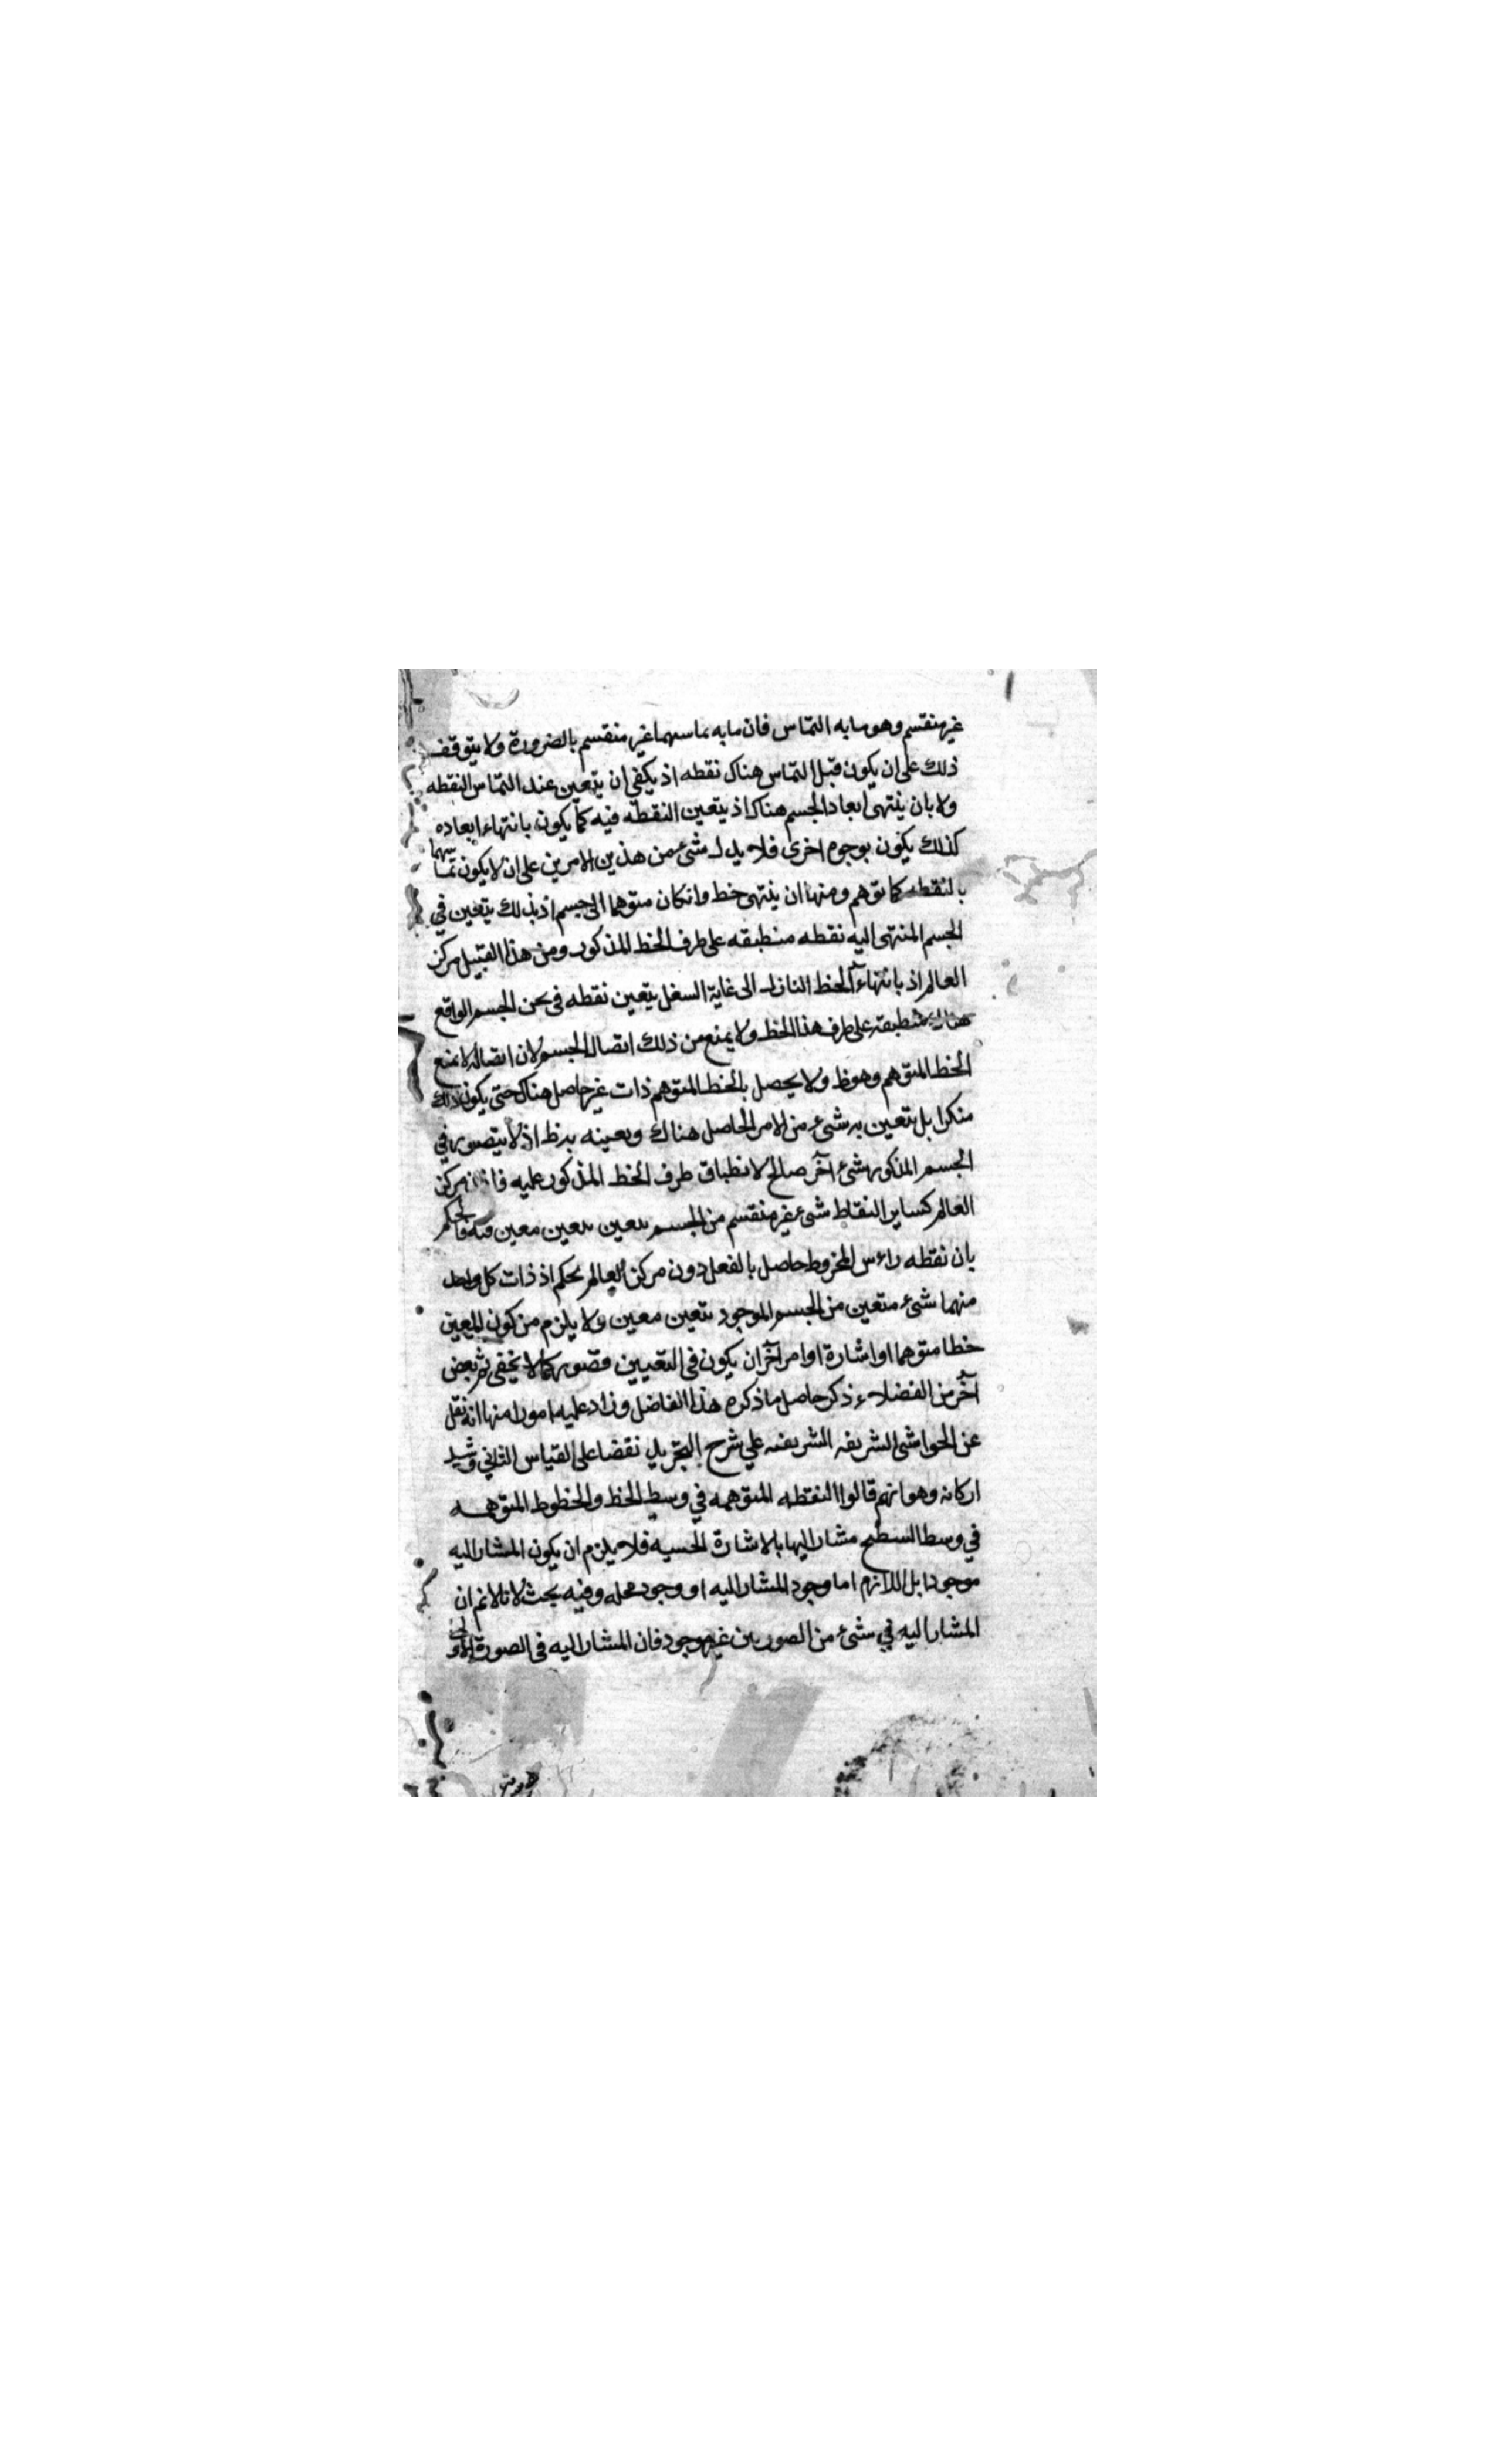 غير منقسم وهو ما به التماس فان ما به تماسهما غير منقسم بالضرورة ولا يتوقف
ذلك على ان يكون قبل التماس هناك نقطه اذ يكفي ان يتعين عند التماس النقطه
ولا بان ينتهى ابعاد الجسم هناك اذ يتعين النقطه فيه كما يكون بانتهاء ابعاده
كذلك يكون بوجوه اخرى فلا يدل شئ من هذين الامرين على ان لا يكون تماسهما
بالنقطه كما توهم ومنها ان ينتهى خط وان كان متوهما الى جسم اذ بذلك يتعين في
الجسم المنتهى اليه نقطه منطبقه على طرف الخط المذكور ومن هذا القبيل مركز
العالم اذ بانتهاء الخط النازل الى غاية السفل يتعين نقطه في الجسم الواقع
هناك منطبقه على طرف هذا الخط ولا يمنع من ذلك اتصال الجسم لان اتصاله لا يمنع
الخط المتوهم وهو ظ ولا يحصل بالخط المتوهم ذات غير حاصل هناك حتى يكون ذلك
منكرا بل يتعين به شئ من الامر الحاصل هناك وتعينه به ظ اذ لا يتصور في
الجسم المذكور شئ آخر صالح لانطباق طرف الخط المذكور عليه فاذن مركز
العالم كساير النقاط شئ غير منقسم من الجسم يتعين بتعين معين منه فالحكم
بان نقطه راءس المخروط حاصل بالفعل دون مركز العالم تحكم اذ ذات كل واحد
منهما شئ متعين من الجسم الموجود بتعين معين ولا يلزم من كون المعين
خطا متوهما او اشارة او امر آخر ان يكون في التعيين قصور كما لا يخفى ثم بعض
آخر من الفضلاء ذكر حاصل ما ذكره هذا الفاضل وزاد عليه امورا منها انه نقل
عن الحواشي الشريفه الشريفه علي شرح التجريد نقضا على القياس الثاني وشيد
اركانه وهو انهم قالوا النقطه المتوهمه في وسط الخط والخطوط المتوهمه
في وسط السطح مشار اليها بالاشارة الحسيه فلا يلزم ان يكون المشار اليه
موجودا بل اللازم اما وجود المشار اليه او وجود محله وفيه بحث لانا لا نم ان
المشار اليه في شئ من الصورتين غير موجود فان المشار اليه في الصورة الاولى